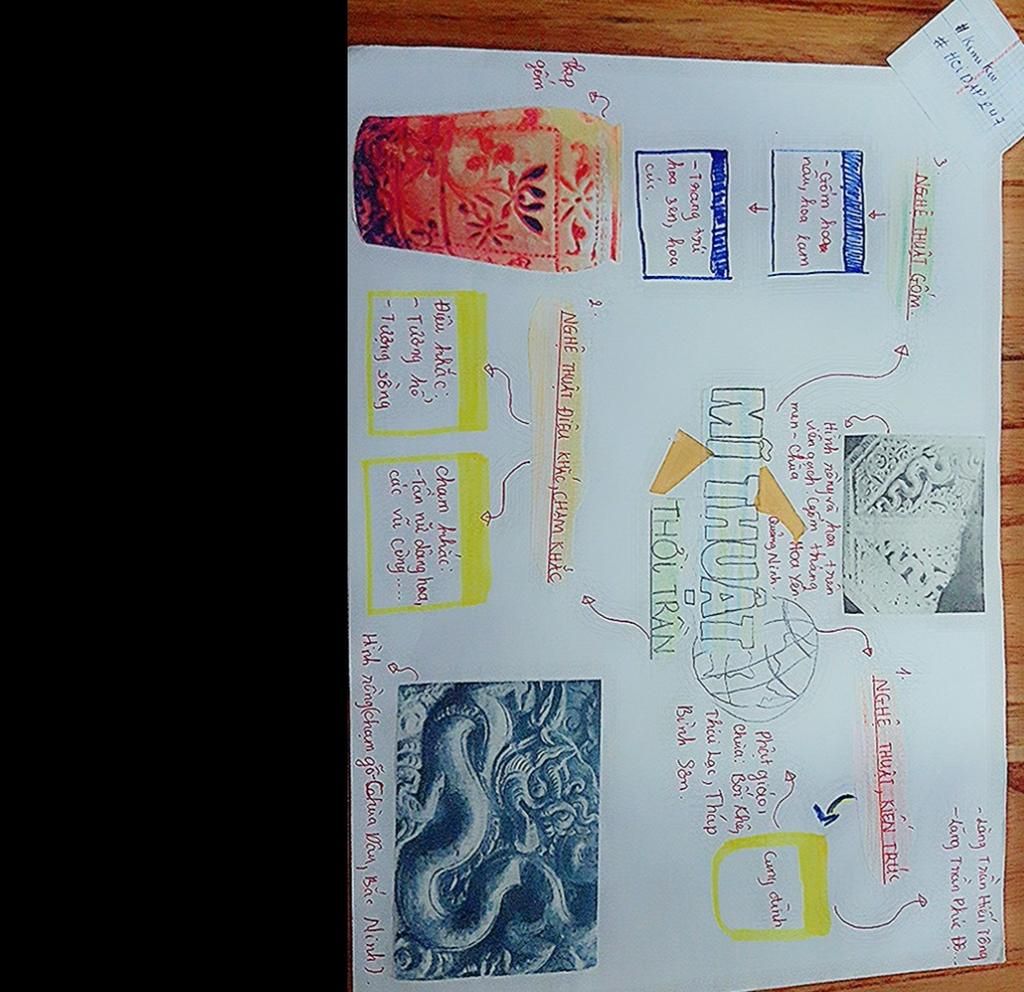 MĨ THUẬT
THỜI TRẦN
1.
NGHỆ THUẬT KIẾN TRÚC
- Lăng Trần Hiến Tông
- Lăng Trần Phúc Độ...
Cung đình
Phật giáo,
chùa: Bối Khê,
Thái Lạc, Tháp
Bình Sơn.
Hình rồng và hoa trên
viên gạch (gốm tháng
men - chùa Hoa Yên
Quảng Ninh.
2.
NGHỆ THUẬT ĐIÊU KHẮC, CHẠM KHẮC
Điêu khắc:
- Tượng hổ,
- Tượng sồng
chạm khắc:
- Tiên nữ dâng hoa,
các vũ công....
Hình rồng (chạm gỗ Chùa Dâu, Bắc Ninh).
3.
NGHỆ THUẬT GỐM.
- Gốm hoa
nâu, hoa lam
- Trang trí
hoa sen, hoa
cúc.
Tháp
gốm
# Kimi